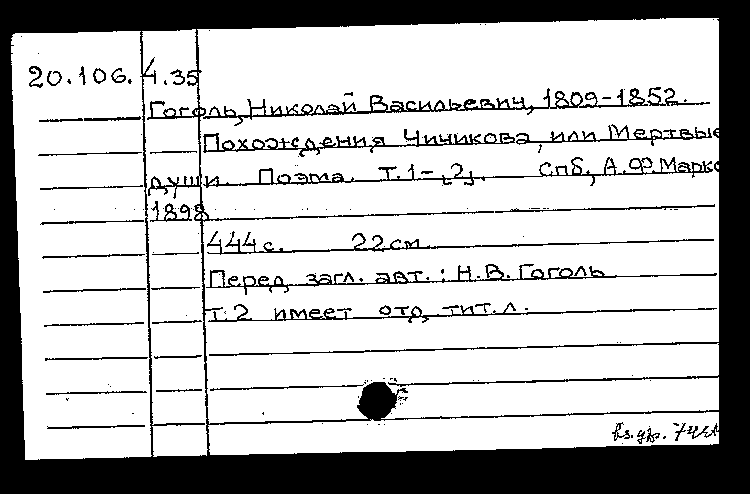 20.106.4.35
Гоголь, Николай Васильевич, 1809-1852.
Похождения Чичикова, или Мертвые
души. Поэма. Т.1-[2]. Спб, А.Ф.Маркс
1898
444с. 22см.
Перед загл. авт.: Н.В.Гоголь
Т.2 имеет отд. тит.л.